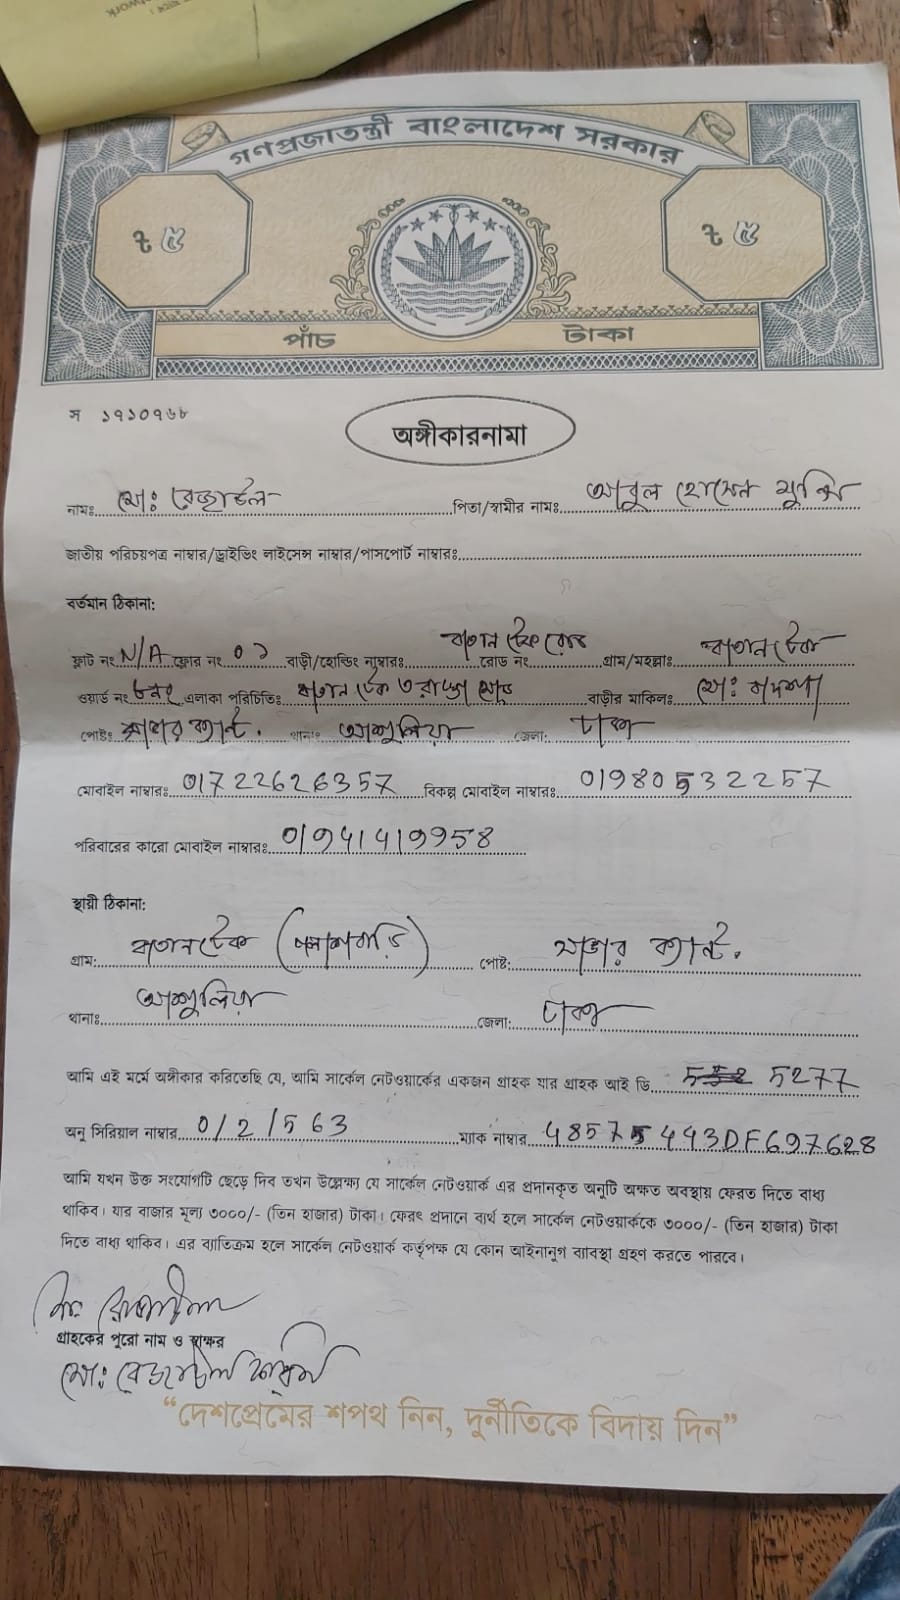 গণপ্রজাতন্ত্রী বাংলাদেশ সরকার
৳ ৫ ৳ ৫
পাঁচ টাকা
স ১৭১০৭৬৮
অঙ্গীকারনামা
নামঃ মো: রেজাউল পিতা/স্বামীর নামঃ আবুল হোসেন মুন্সি
জাতীয় পরিচয়পত্র নাম্বার/ড্রাইভিং লাইসেন্স নাম্বার/পাসপোর্ট নাম্বারঃ
বর্তমান ঠিকানা:
ফ্লাট নং N/A ফ্লোর নং ০১ বাড়ী/হোল্ডিং নাম্বারঃ রোড নং গ্রাম/মহল্লাঃ
ওয়ার্ড নং ৮নং এলাকা পরিচিতি: বাড়ীর মালিকঃ মো: বাদশা
পোষ্টঃ সাভার ক্যান্ট. থানাঃ আশুলিয়া জেলা: ঢাকা
মোবাইল নাম্বারঃ 01722626357 বিকল্প মোবাইল নাম্বারঃ 01980532257
পরিবারের কারো মোবাইল নাম্বারঃ
স্থায়ী ঠিকানা:
গ্রাম: (পলাশবাড়ি) পোষ্ট: সাভার ক্যান্ট.
থানাঃ আশুলিয়া জেলা: ঢাকা
আমি এই মর্মে অঙ্গীকার করিতেছি যে, আমি সার্কেল নেটওয়ার্কের একজন গ্রাহক যার গ্রাহক আই ডি 5277
অনু সিরিয়াল নাম্বার 0/2/563 ম্যাক নাম্বার
আমি যখন উক্ত সংযোগটি ছেড়ে দিব তখন উল্লেক্ষ্য যে সার্কেল নেটওয়ার্ক এর প্রদানকৃত অনুটি অক্ষত অবস্থায় ফেরত দিতে বাধ্য
থাকিব। যার বাজার মূল্য ৩০০০/- (তিন হাজার) টাকা। ফেরৎ প্রদানে ব্যর্থ হলে সার্কেল নেটওয়ার্ককে ৩০০০/- (তিন হাজার) টাকা
দিতে বাধ্য থাকিব। এর ব্যাতিক্রম হলে সার্কেল নেটওয়ার্ক কর্তৃপক্ষ যে কোন আইনানুগ ব্যাবস্থা গ্রহণ করতে পারবে।
গ্রাহকের পুরো নাম ও স্বাক্ষর
মো: রেজাউল
“দেশপ্রেমের শপথ নিন, দুর্নীতিকে বিদায় দিন”